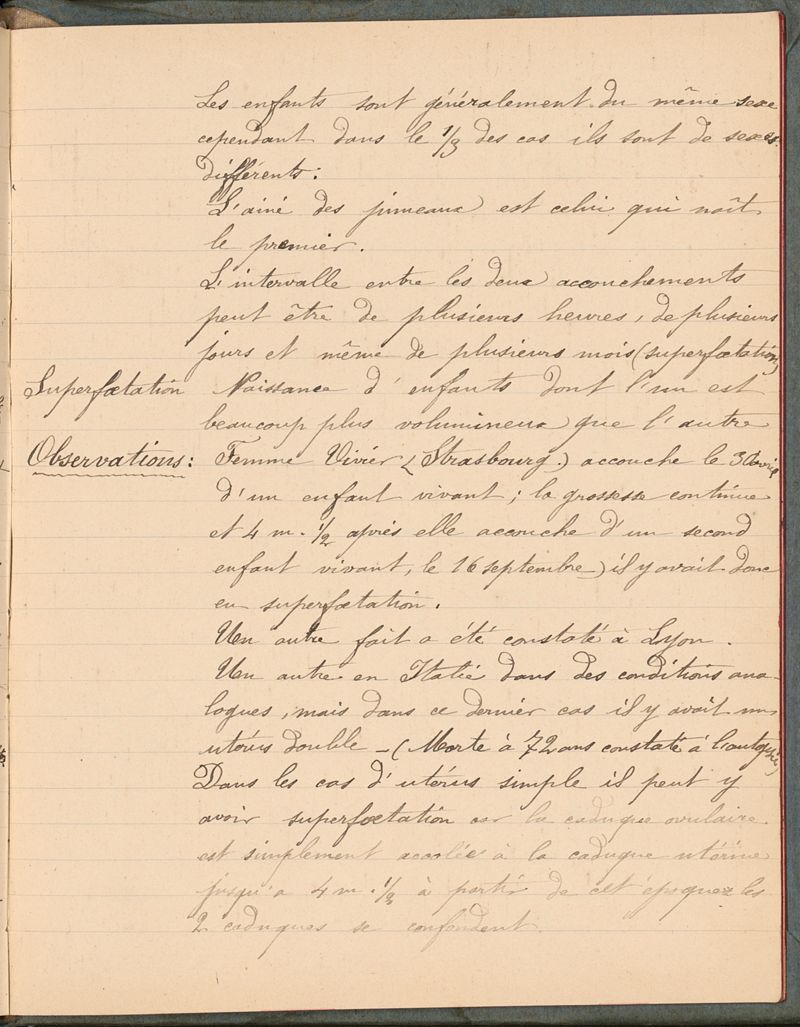 Les enfants sont généralement du même sexe
cependant dans le 1/3 des cas ils sont de sexes
différents :
L'ainé des jumeaux est celui qui naît
le premier.
L'intervalle entre les deux accouchements
peut être de plusieurs heures, de plusieurs
jours et même de plusieurs mois (superfœtation)
Superfœtation Naissance d'enfants dont l'un est
beaucoup plus volumineux que l'autre
Observations : Femme Vivier (Strasbourg.) accouche le 30 avril
d'un enfant vivant ; la grossesse continue
et 4 m. 1/2 après elle accouche d'un second
enfant vivant, le 16 septembre _ ) il y avait donc
eu superfœtation.
Un autre fait a été constaté à Lyon.
Un autre en Italie dans des conditions ana-
logues, mais dans ce dernier cas il y avait un
utérus double - (Morte à 72 ans constaté à l'autopsie)
Dans les cas d'utérus simple il peut y
avoir superfœtation car la caduque ovulaire
est simplement accolée à la caduque utérine
jusqu'a 4 m. 1/2 à partir de cet époque les
2 caduques se confondent.